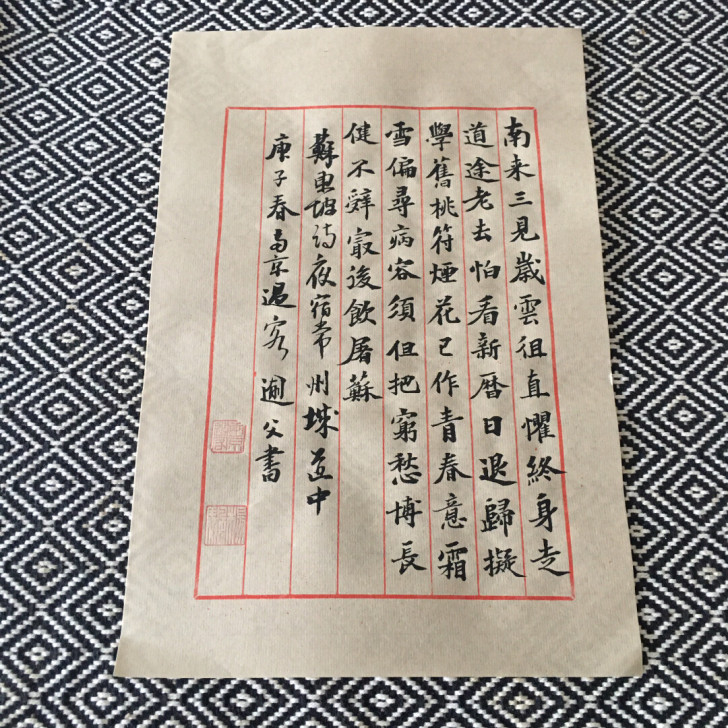 南来三見歲雲徂直懼終身走
道途老去怕看新曆日退歸擬
學舊桃符煙花已作青春意霜
雪偏尋病客須但把窮愁博長
健不辭最後飲屠蘇
蘇東坡詩夜宿常州城並中
庚子春南京過客 圃父書